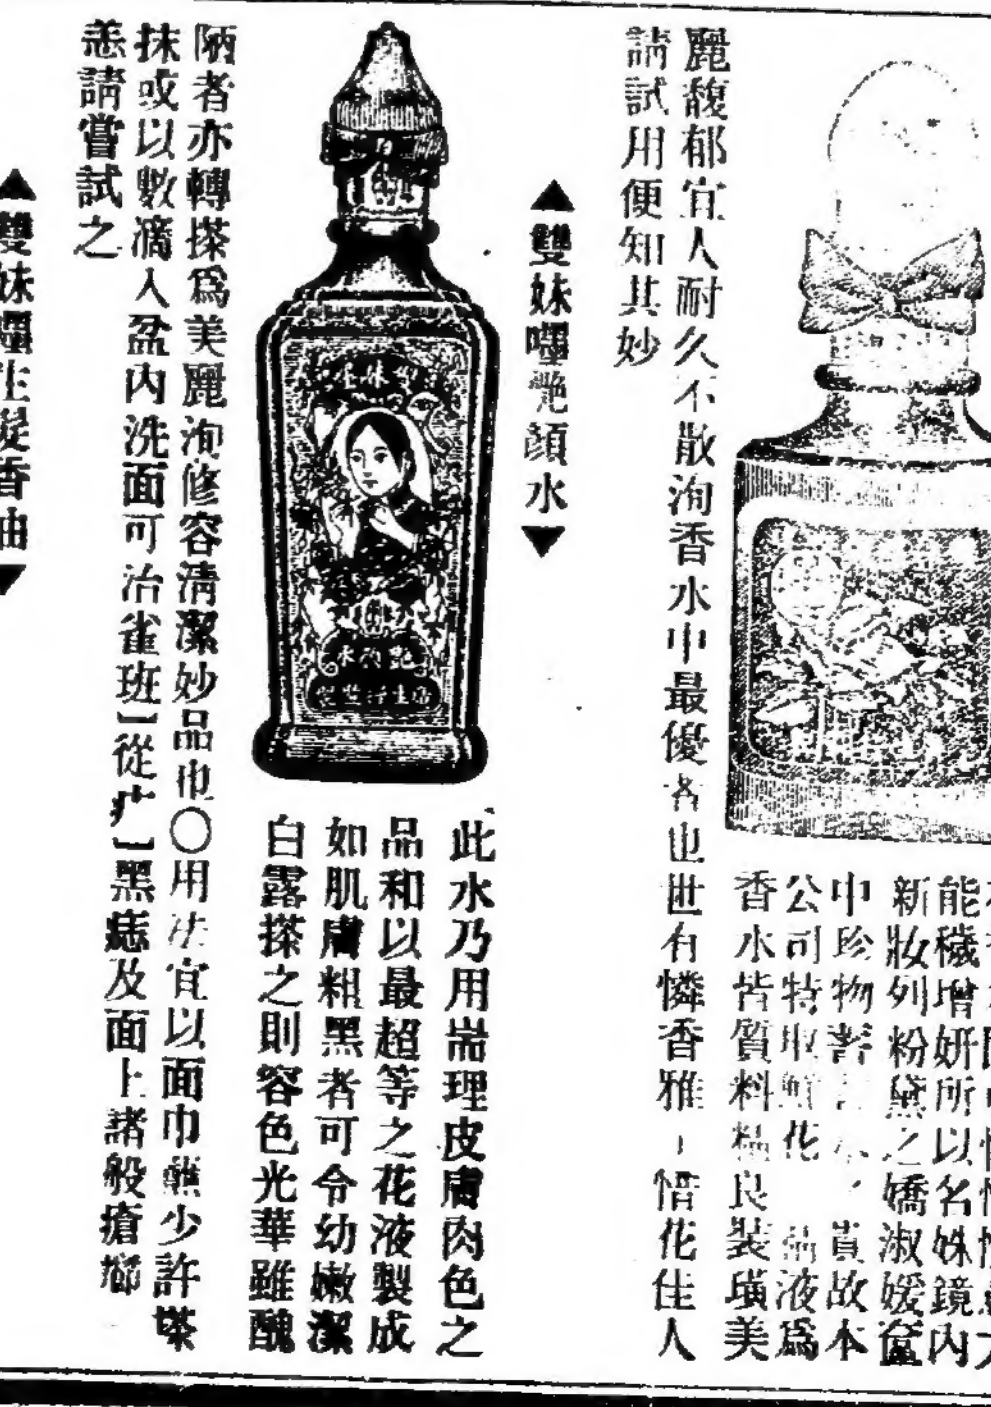 能穢增妍所以名姝鏡內
新妝列粉黛之嬌淑媛奩
中珍物著貴故本
公司特取鮮花液爲
香水皆質料精良裝璜美
麗馥郁宜人耐久不散洵香水中最優者也世有憐香雅士惜花佳人
請試用便知其妙
▲雙妹嚜艷顏水▼
雙妹嚜
艷顏水
此水乃用耑理皮膚肉色之
品和以最超等之花液製成
如肌膚粗黑者可令幼嫩潔
白露搽之則容色光華雖醜
陋者亦轉搽爲美麗洵修容清潔妙品也〇用法宜以面巾蘸少許搽
抹或以數滴入盆內洗面可治雀班[從疒]黑痣及面上諸般瘡癤
恙請嘗試之
▲雙妹嚜生髮香油▼